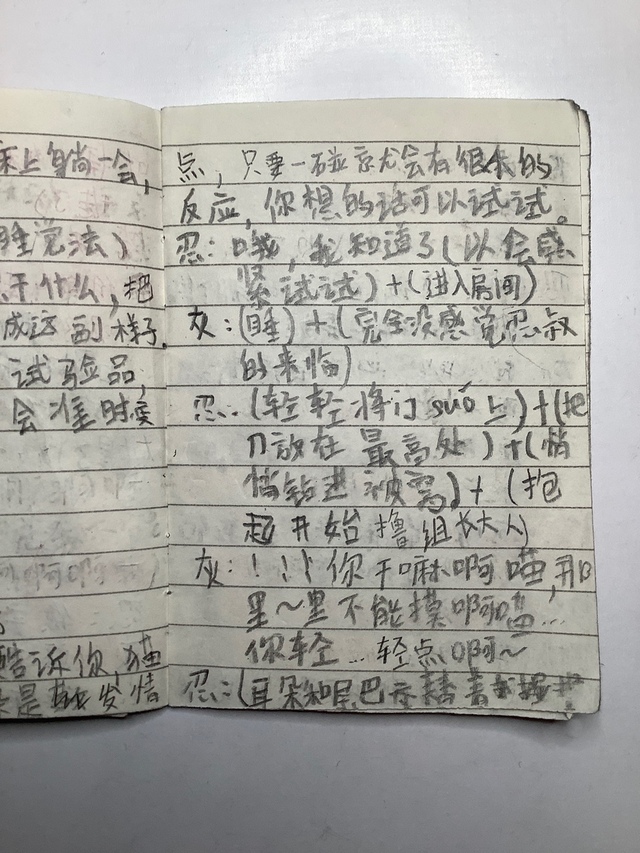 床上自尚一会,
睡觉法)
干什么,把
成这副样子.
试验品,
会准时
告诉你,猫
是 发情
点,只要一碰京尤会有很大的
反应,你想的话可以试试。
忍:哦,我知道了(以会感
紧试试)+(进入房间)
灰:(睡)+(完全没感觉忍叔
的来临)
忍:(轻轻将门suǒ上)+(把
刀放在最高处)+(悄
悄钻进被窝)+(抱
起开始撸组长大人)
灰:!!!你干嘛啊喵,那
里~里不能摸啊喵...
你轻...轻点啊~
忍:(耳朵和尾巴